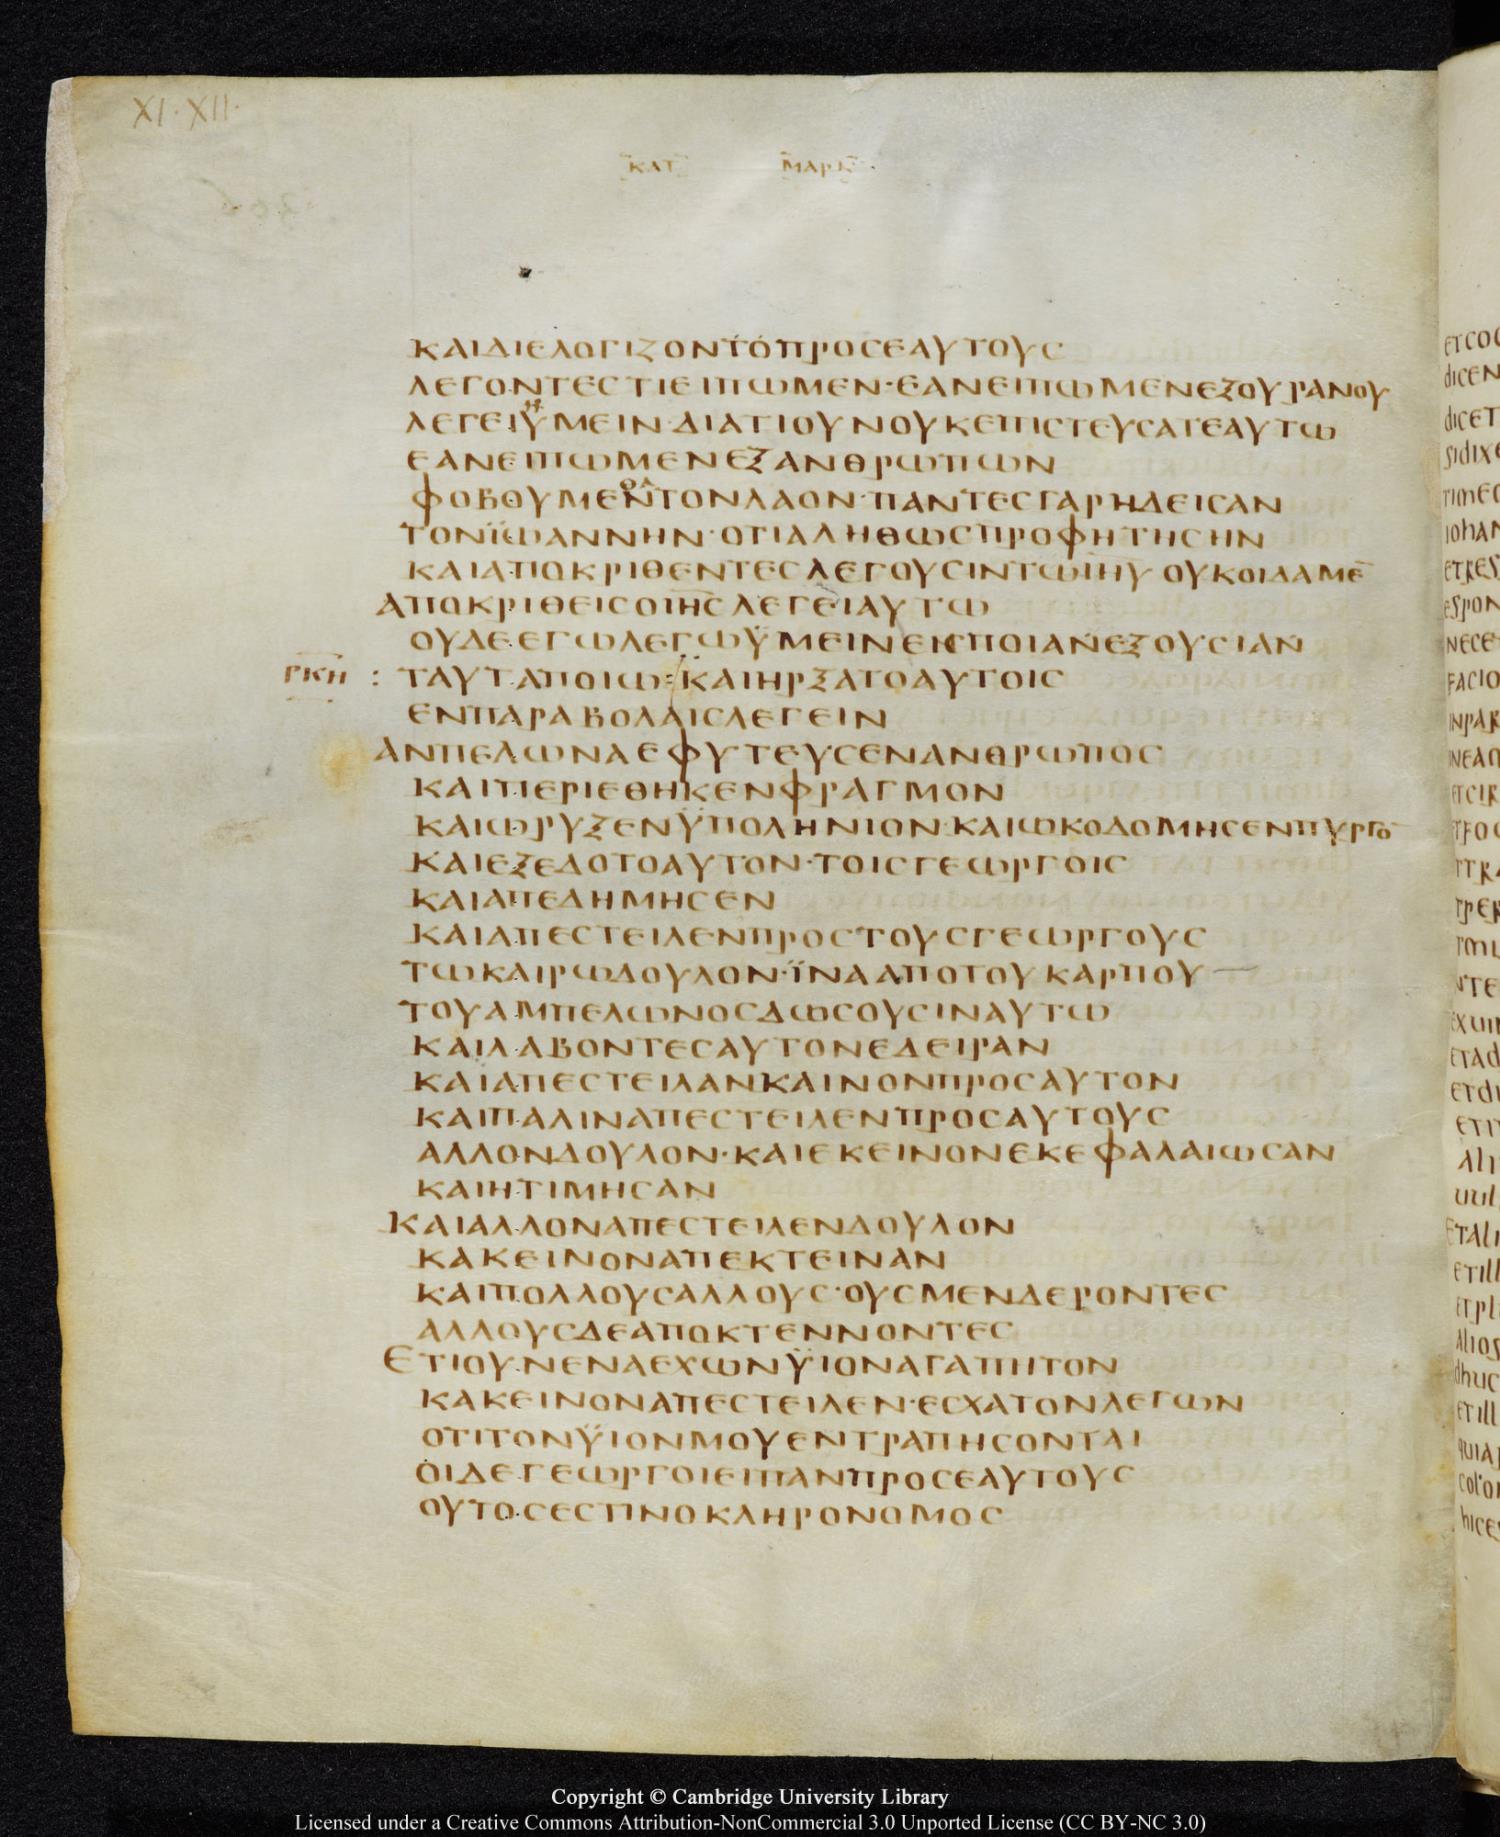 XI·XII·
ΚΑΤ ΜΑΡΚ
ΚΑΙΔΙΕΛΟΓΙΖΟΝΤΟΠΡΟСΕΑΥΤΟΥС
ΛΕΓΟΝΤΕСΤΙΕΙΠΩΜΕΝ·ΕΑΝΕΙΠΩΜΕΝΕΞΟΥΡΑΝΟΥ
ΛΕΓΕΙΫΜΕΙΝ·ΔΙΑΤΙΟΥΝΟΥΚΕΠΙСΤΕΥСΑΤΕΑΥΤΩ
ΕΑΝΕΙΠΩΜΕΝΕΞΑΝΘΡΩΠΩΝ
ΦΟΒΟΥΜΕΝΤΟΝΛΑΟΝ·ΠΑΝΤΕСΓΑΡΗΔΕΙСΑΝ
ΤΟΝΪΩΑΝΝΗΝ·ΟΤΙΑΛΗΘΩСΠΡΟΦΗΤΗСΗΝ
ΚΑΙΑΠΟΚΡΙΘΕΝΤΕСΛΕΓΟΥСΙΝΤΩΙΗΥ ΟΥΚΟΙΔΑΜΕ̅
ΑΠΟΚΡΙΘΕΙСΟΙΗСΛΕΓΕΙΑΥΤΩ
ΟΥΔΕΕΓΩΛΕΓΩΫΜΕΙΝΕΝΠΟΙΑΝΕΞΟΥСΙΑΝ
ΡΚΗ : ΤΑΥΤΑΠΟΙΩ:ΚΑΙΗΡΞΑΤΟΑΥΤΟΙС
ΕΝΠΑΡΑΒΟΛΑΙСΛΕΓΕΙΝ
ΑΝΠΕΛΩΝΑΕΦΥΤΕΥСΕΝΑΝΘΡΩΠΟС
ΚΑΙΠΕΡΙΕΘΗΚΕΝΦΡΑΓΜΟΝ
ΚΑΙΩΡΥΞΕΝΫΠΟΛΗΝΙΟΝ·ΚΑΙΩΚΟΔΟΜΗСΕΝΠΥΡΓΟ̅
ΚΑΙΕΞΕΔΟΤΟΑΥΤΟΝ·ΤΟΙСΓΕΩΡΓΟΙС
ΚΑΙΑΠΕΔΗΜΗСΕΝ
ΚΑΙΑΠΕСΤΕΙΛΕΝΠΡΟСΤΟΥСΓΕΩΡΓΟΥС
ΤΩΚΑΙΡΩΔΟΥΛΟΝ·ΪΝΑΑΠΟΤΟΥΚΑΡΠΟΥ
ΤΟΥΑΜΠΕΛΩΝΟСΔΩСΟΥСΙΝΑΥΤΩ
ΚΑΙΛΑΒΟΝΤΕСΑΥΤΟΝΕΔΕΙΡΑΝ
ΚΑΙΑΠΕСΤΕΙΛΑΝΚΑΙΝΟΝΠΡΟСΑΥΤΟΝ
ΚΑΙΠΑΛΙΝΑΠΕСΤΕΙΛΕΝΠΡΟСΑΥΤΟΥС
ΑΛΛΟΝΔΟΥΛΟΝ·ΚΑΙΕΚΕΙΝΟΝΕΚΕΦΑΛΑΙΩСΑΝ
ΚΑΙΗΤΙΜΗСΑΝ
ΚΑΙΑΛΛΟΝΑΠΕСΤΕΙΛΕΝΔΟΥΛΟΝ
ΚΑΚΕΙΝΟΝΑΠΕΚΤΕΙΝΑΝ
ΚΑΙΠΟΛΛΟΥСΑΛΛΟΥС·ΟΥСΜΕΝΔΕΡΟΝΤΕС
ΑΛΛΟΥСΔΕΑΠΟΚΤΕΝΝΟΝΤΕС
ΕΤΙΟΥΝΕΝΑΕΧΩΝΫΙΟΝΑΓΑΠΗΤΟΝ
ΚΑΚΕΙΝΟΝΑΠΕСΤΕΙΛΕΝ·ΕСΧΑΤΟΝΛΕΓΩΝ
ΟΤΙΤΟΝΫΙΟΝΜΟΥΕΝΤΡΑΠΗСΟΝΤΑΙ
ΟΙΔΕΓΕΩΡΓΟΙΕΙΠΑΝΠΡΟСΕΑΥΤΟΥС
ΟΥΤΟСΕСΤΙΝΟΚΛΗΡΟΝΟΜΟС
Copyright © Cambridge University Library
Licensed under a Creative Commons Attribution-NonCommercial 3.0 Unported License (CC BY-NC 3.0)